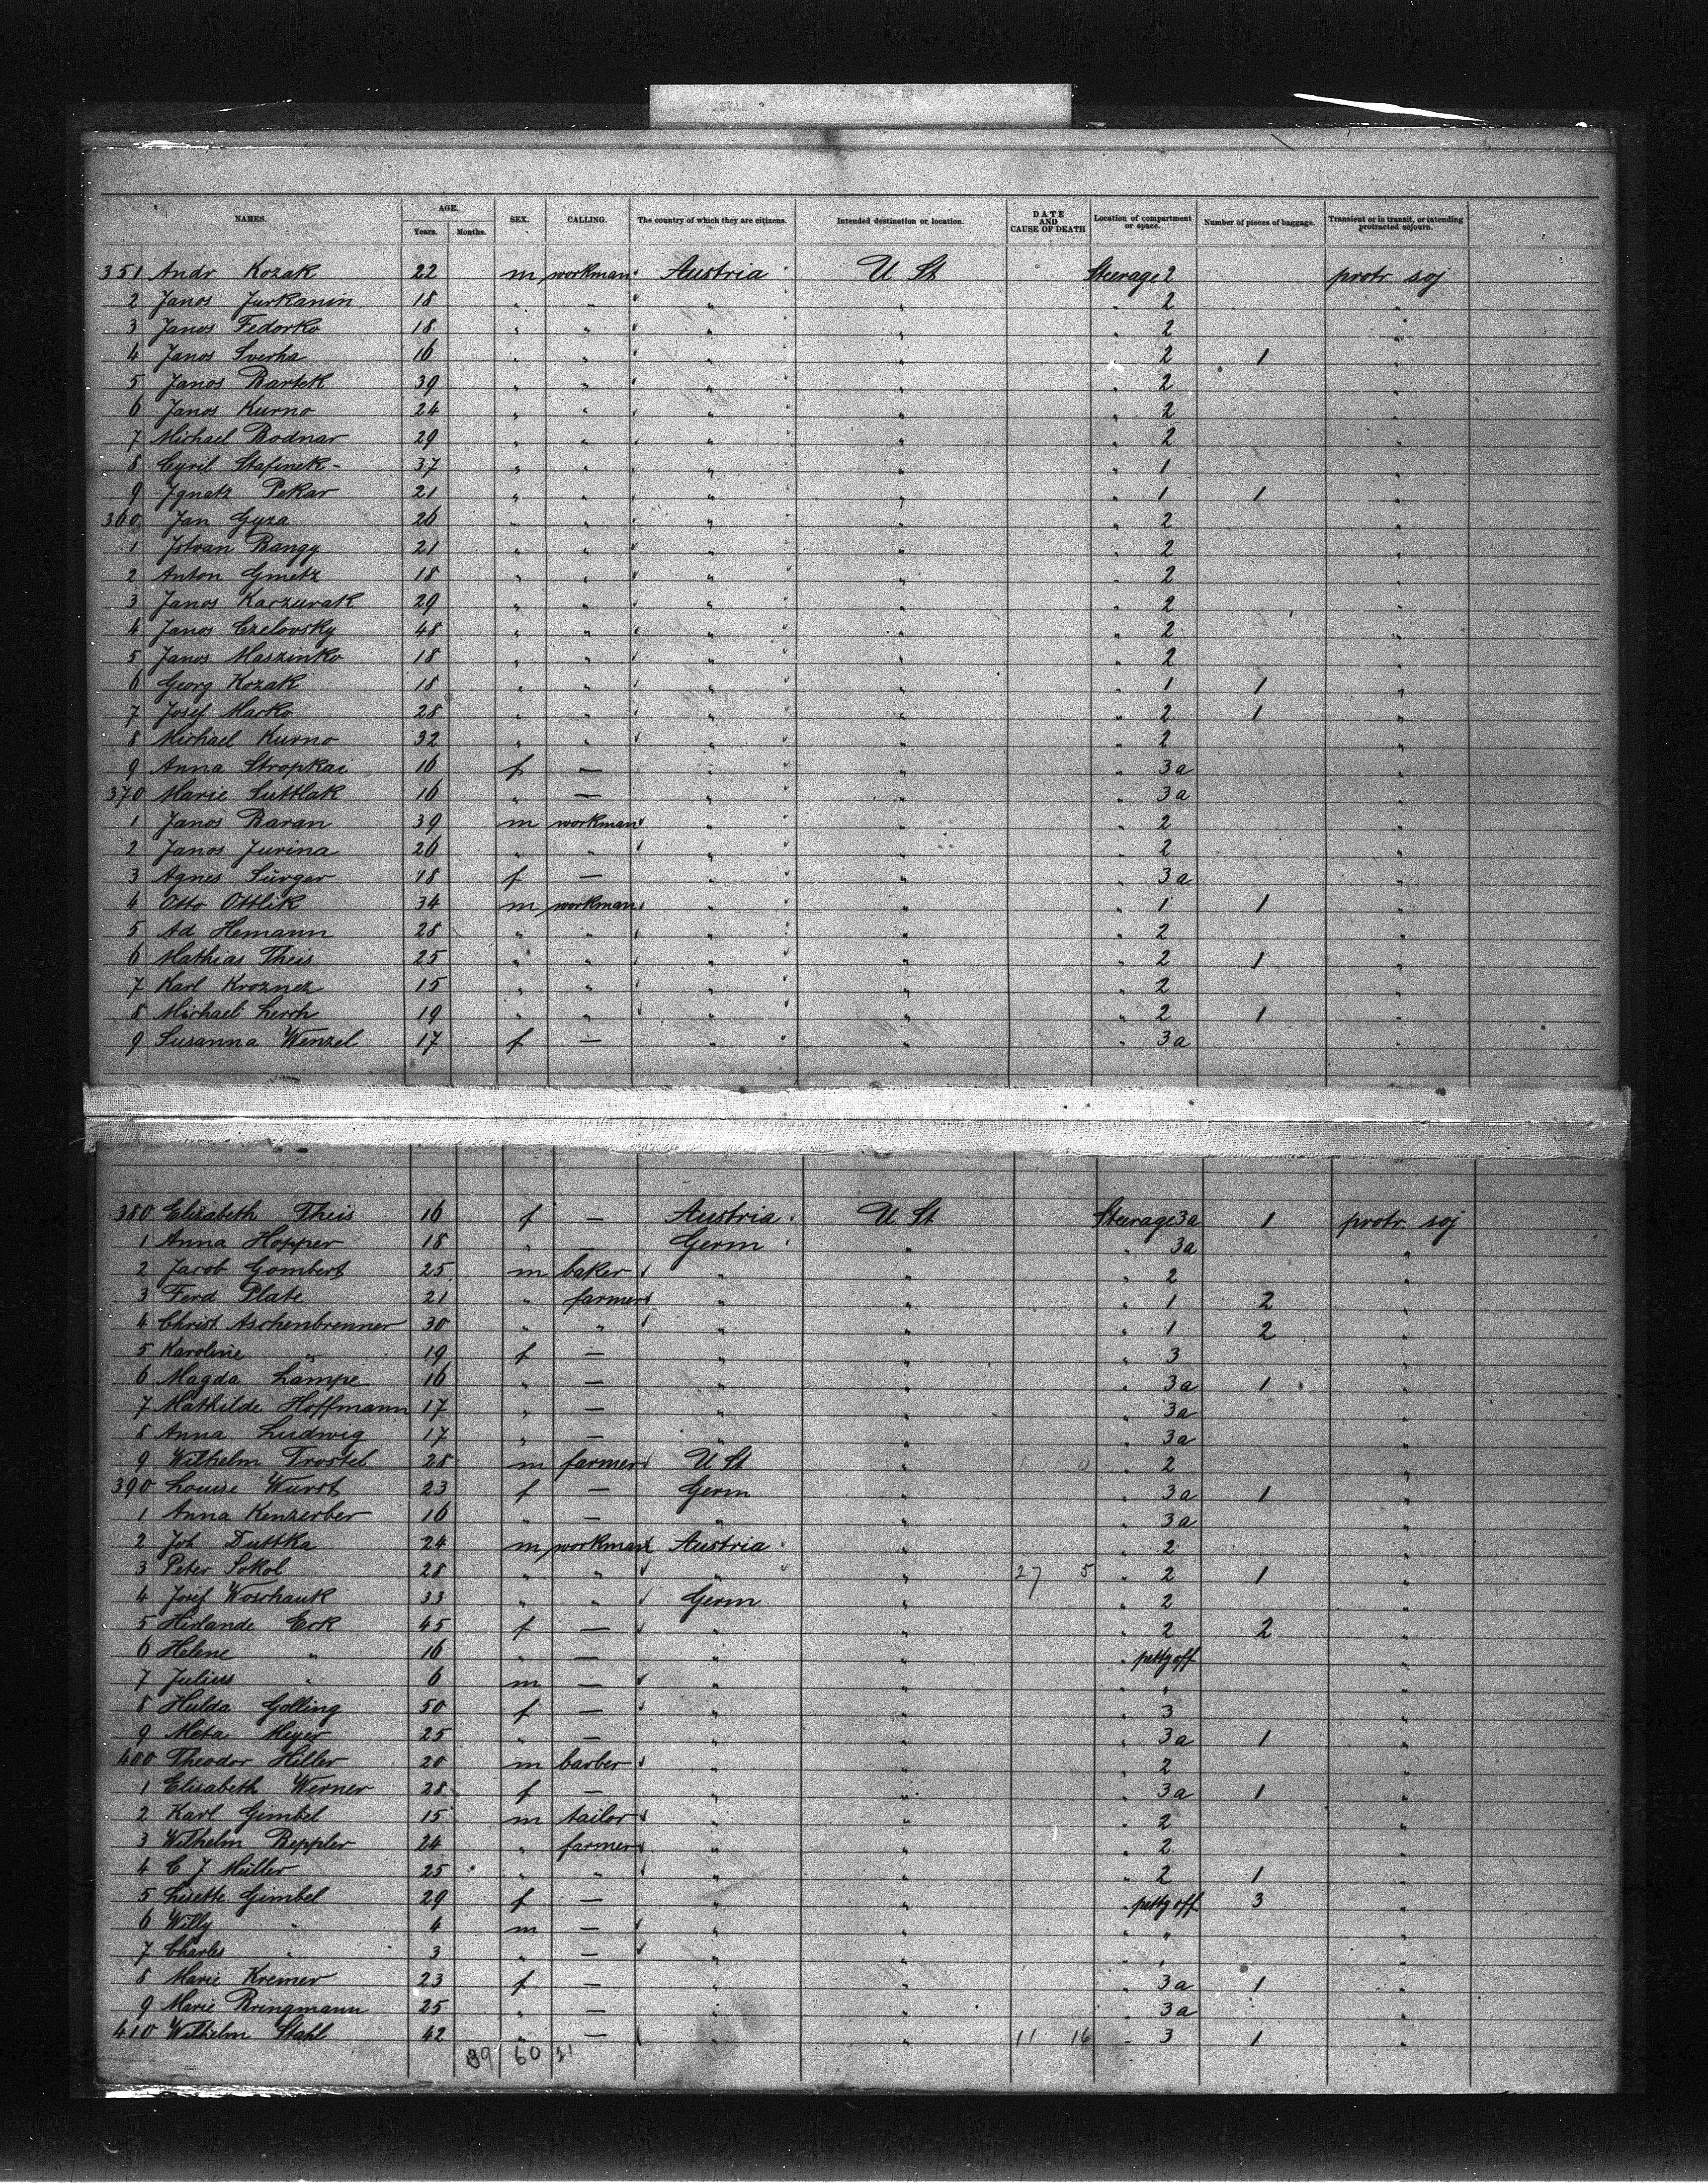 NAMES. AGE. Years. Months. SEX. CALLING. The country of which they are citizens. Intended destination or location. DATE AND CAUSE OF DEATH Location of compartment or space. Number of pieces of baggage. Transient or in transit, or intending protracted sojourn.
351 Andr Kozak 22 m workman Austria U St Steerage 2 protr. soj
2 Janos Jurkanin 18 " " " " " 2 "
3 Janos Fedorko 18 " " " " " 2 "
4 Janos Sverha 16 " " " " " 2 1 "
5 Janos Bartek 39 " " " " " 2 "
6 Janos Kurno 24 " " " " " 2 "
7 Michael Bodnar 29 " " " " " 2 "
8 Cyril Stafinek 37 " " " " " 1 "
9 Ignatz Pekar 21 " " " " " 1 1 "
360 Jan Gyza 26 " " " " " 2 "
1 Istvan Bangy 21 " " " " " 2 "
2 Anton Gmetz 18 " " " " " 2 "
3 Janos Kaczurak 29 " " " " " 2 "
4 Janos Czelovsky 48 " " " " " 2 "
5 Janos Maszinko 18 " " " " " 2 "
6 Georg Kozak 18 " " " " " 1 1 "
7 Josef Marko 28 " " " " " 2 1 "
8 Michael Kurno 32 " " " " " 2 "
9 Anna Stropkai 16 f — " " " 3a "
370 Marie Suttlak 16 " — " " " 3a "
1 Janos Baran 39 m workman " " " 2 "
2 Janos Jurina 26 " " " " " 2 "
3 Agnes Sürger 18 f — " " " 3a "
4 Otto Ottlik 34 m workman " " " 1 1 "
5 Ad Hemann 28 " " " " " 2 "
6 Mathias Theis 25 " " " " " 2 1 "
7 Karl Kroznez 15 " " " " " 2 "
8 Michael Lerch 19 " " " " " 2 1 "
9 Susanna Wenzel 17 f — " " " 3a "
380 Elisabeth Theis 16 f — Austria U St Steerage 3a 1 protr. soj
1 Anna Hopper 18 " — Germ " " 3a "
2 Jacob Gombert 25 m baker " " " 2 "
3 Ferd Plate 21 " farmer " " " 1 2 "
4 Christ Aschenbrenner 30 " " " " " 1 2 "
5 Karoline " 19 f — " " " 3 "
6 Magda Lampe 16 " — " " " 3a 1 "
7 Mathilde Hoffmann 17 " — " " " 3a "
8 Anna Ludwig 17 " — " " " 3a "
9 Wilhelm Trostel 28 m farmer U St " 0 " 2 "
390 Louise Wurst 23 f — Germ " " 3a 1 "
1 Anna Kenzerber 16 " — " " " 3a "
2 Joh Duttka 24 m workman Austria " " 2 "
3 Peter Sokol 28 " " " " 27 5 " 2 1 "
4 Josef Woschauk 33 " " Germ " " 2 "
5 Hirlande Eck 45 f — " " " 2 2 "
6 Helene " 16 " — " " " petty off "
7 Julius " 6 m — " " " " "
8 Hulda Golling 50 f — " " " 3 "
9 Meta Meyer 25 " — " " " 3a 1 "
400 Theodor Hiller 20 m barber " " " 2 "
1 Elisabeth Werner 28 f — " " " 3a 1 "
2 Karl Gimbel 15 m tailor " " " 2 "
3 Wilhelm Beppler 24 " farmer " " " 2 "
4 C J Müller 25 " " " " " 2 1 "
5 Lisette Gimbel 29 f — " " " petty off 3 "
6 Willy " 4 m — " " " " "
7 Charles " 3 " — " " " " "
8 Marie Kremer 23 f — " " " 3a 1 "
9 Marie Bringmann 25 " — " " " 3a "
410 Wilhelm Stahl 42 " — " " 11 16 " 3 1 "
39 60 21